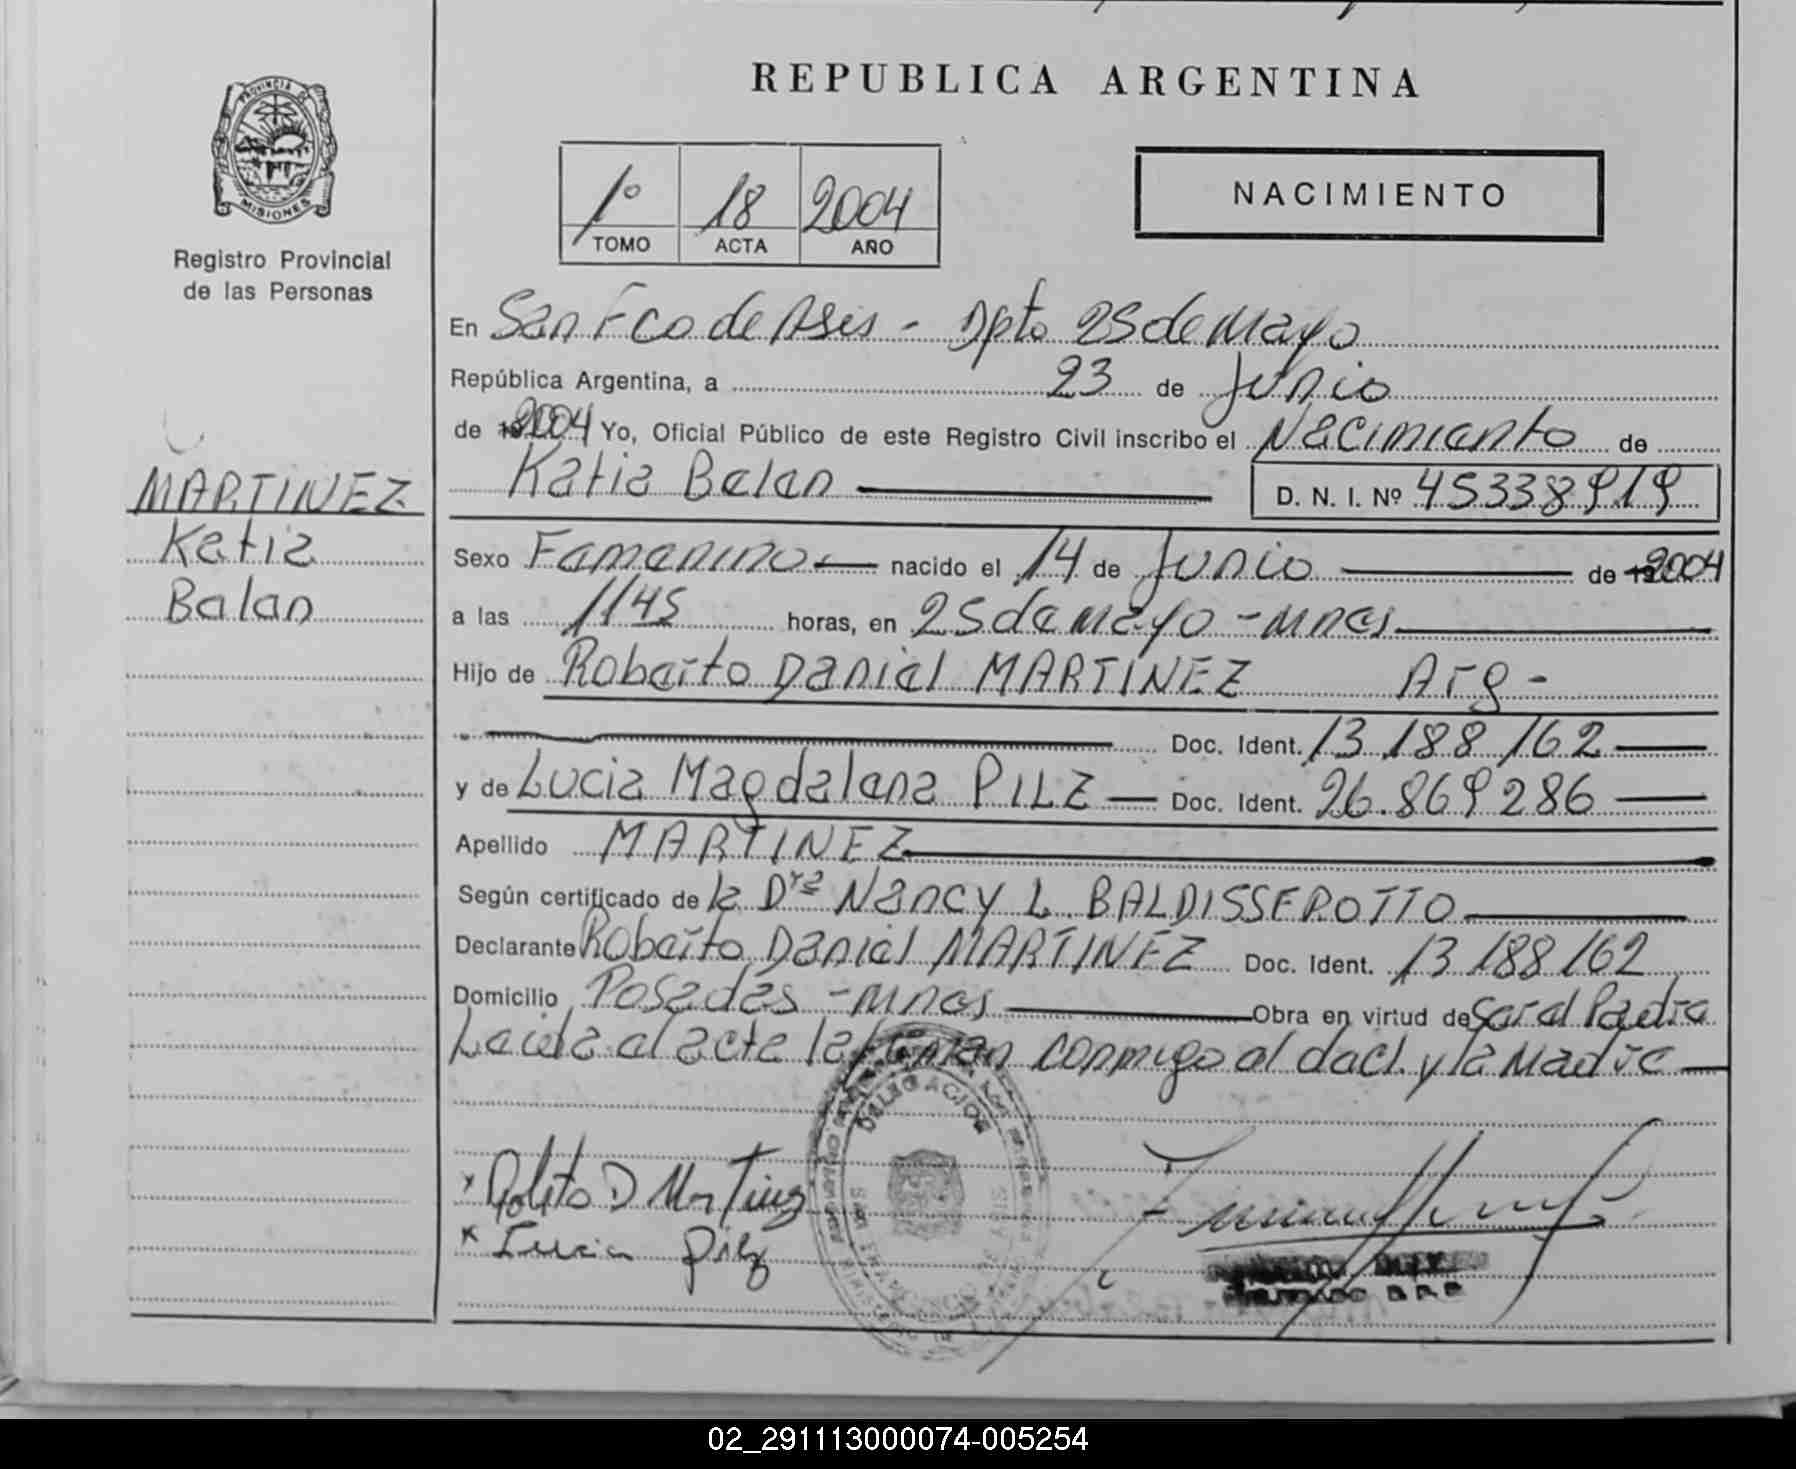 REPUBLICA ARGENTINA
PROVINCIA DE
MISIONES
Registro Provincial
de las Personas
1º 18 2004
TOMO ACTA AÑO
NACIMIENTO
En San Fco de Asis - Dpto 25 de Mayo
República Argentina, a 23 de Junio
de 2004 Yo, Oficial Público de este Registro Civil inscribo el Nacimiento de
Katia Belen D. N. I. Nº 45338919
MARTINEZ
Katia
Belen
Sexo Femenino nacido el 14 de Junio de 2004
a las 1145 horas, en 25 de mayo - mnes
Hijo de Roberto Daniel MARTINEZ Arg -
Doc. Ident. 13.188.162
y de Lucia Magdalena PILZ Doc. Ident. 26.869286
Apellido MARTINEZ
Según certificado de la Drª Nancy L. BALDISSEROTTO
Declarante Roberto Daniel MARTINEZ Doc. Ident. 13.188.162
Domicilio Posadas - mnes Obra en virtud de ser el Padre
Leida el acta la firman conmigo el decl. y la Madre
DELEGACION
x Roberto D Martinez
x Lucia Pilz
02_291113000074-005254